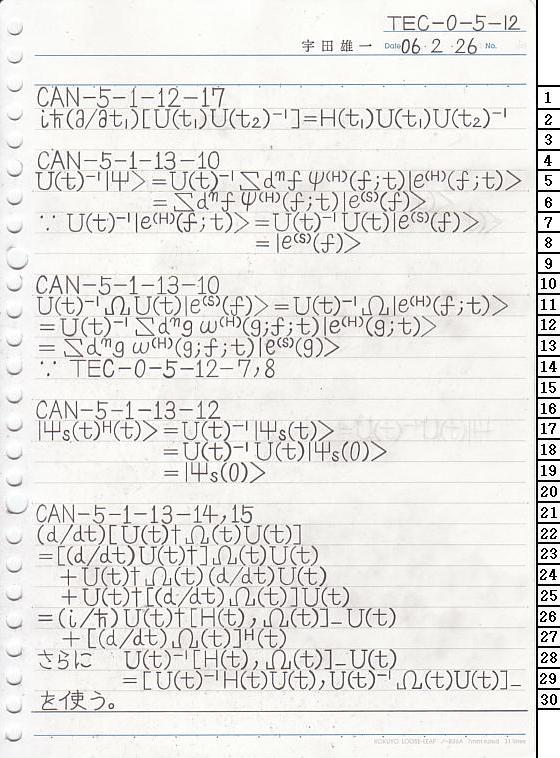 TEC-0-5-12
宇田雄一 Date 06・2・26 No.
CAN-5-1-12-17
iħ(∂/∂t₁)[U(t₁)U(t₂)⁻¹]=H(t₁)U(t₁)U(t₂)⁻¹
CAN-5-1-13-10
U(t)⁻¹|Ψ> =U(t)⁻¹∑dⁿf ψ⁽ᴴ⁾(f;t)|e⁽ᴴ⁾(f;t)>
=∑dⁿf ψ⁽ᴴ⁾(f;t)|e⁽ˢ⁾(f)>
∵ U(t)⁻¹|e⁽ᴴ⁾(f;t)>=U(t)⁻¹U(t)|e⁽ˢ⁾(f)>
=|e⁽ˢ⁾(f)>
CAN-5-1-13-10
U(t)⁻¹ΩU(t)|e⁽ˢ⁾(f)>=U(t)⁻¹Ω|e⁽ᴴ⁾(f;t)>
=U(t)⁻¹∑dⁿg ω⁽ᴴ⁾(g;f;t)|e⁽ᴴ⁾(g;t)>
=∑dⁿg ω⁽ᴴ⁾(g;f;t)|e⁽ˢ⁾(g)>
∵ TEC-0-5-12-7,8
CAN-5-1-13-12
|Ψs(t)ᴴ(t)> =U(t)⁻¹|Ψs(t)>
=U(t)⁻¹U(t)|Ψs(0)>
=|Ψs(0)>
CAN-5-1-13-14,15
(d/dt)[U(t)†Ω(t)U(t)]
=[(d/dt)U(t)†]Ω(t)U(t)
+U(t)†Ω(t)(d/dt)U(t)
+U(t)†[(d/dt)Ω(t)]U(t)
=(i/ħ)U(t)†[H(t),Ω(t)]₋U(t)
+[(d/dt)Ω(t)]ᴴ(t)
さらに U(t)⁻¹[H(t),Ω(t)]₋U(t)
=[U(t)⁻¹H(t)U(t),U(t)⁻¹Ω(t)U(t)]₋
を使う。
KOKUYO LOOSE-LEAF ノ-836A 7mm ruled 31 lines
1
2
3
4
5
6
7
8
9
10
11
12
13
14
15
16
17
18
19
20
21
22
23
24
25
26
27
28
29
30